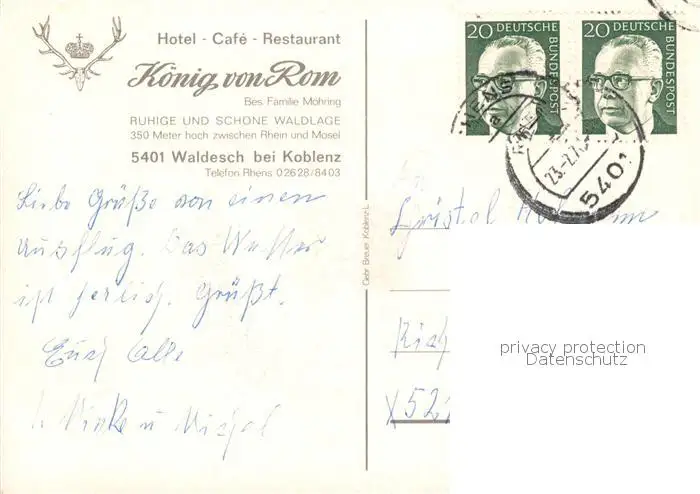 Hotel - Café - Restaurant
König von Rom
Bes. Familie Möhring
RUHIGE UND SCHÖNE WALDLAGE
350 Meter hoch zwischen Rhein und Mosel
5401 Waldesch bei Koblenz
Telefon Rhens 02628/8403
Liebe Grüße von einem
Ausflug. Das Wetter
ist herlich. Grüßt.
Euch Alle
u Michael
Gebr. Breuer, Koblenz-L.
20 DEUTSCHE BUNDESPOST
20 DEUTSCHE BUNDESPOST
23.-2.7
5401
privacy protection
Datenschutz